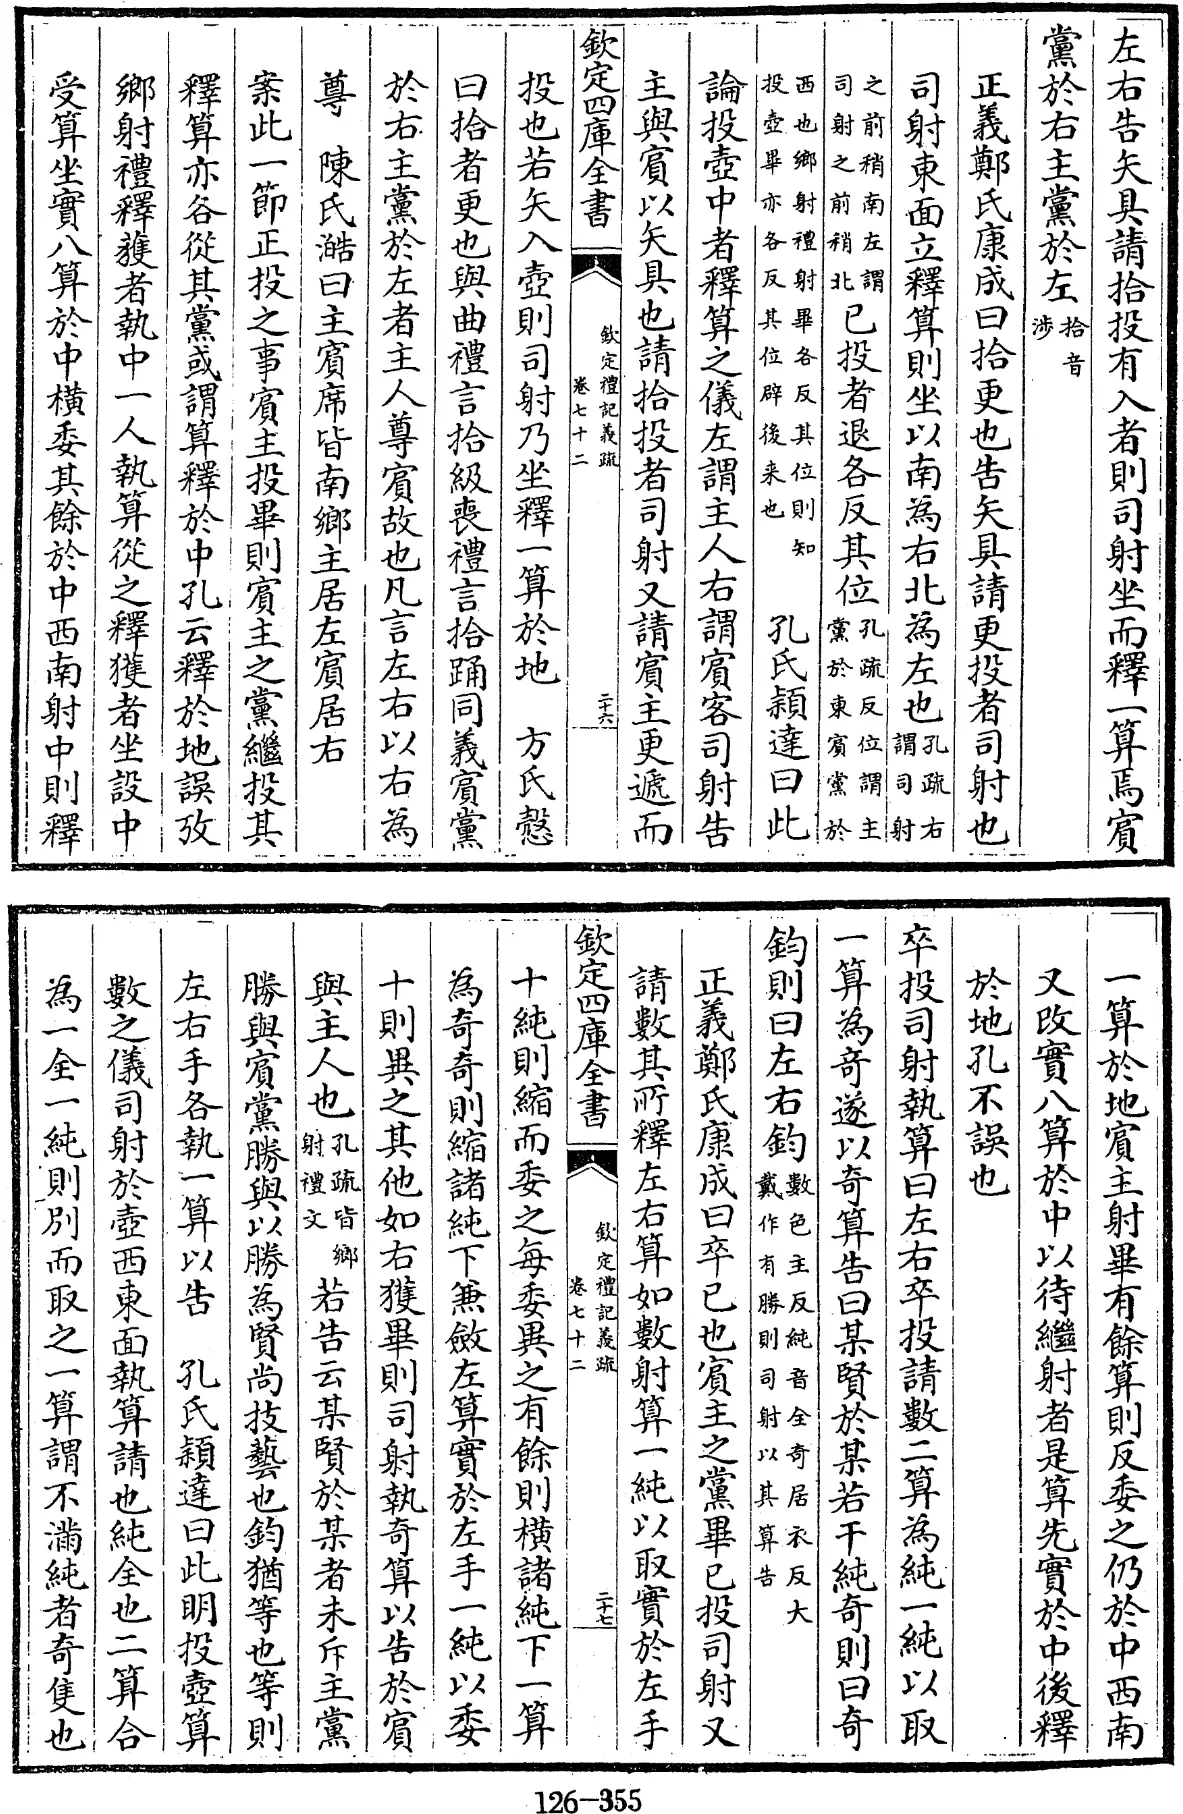 左右告矢具請拾投有入者則司射坐而釋一算焉賔
黨於右主黨於左拾音涉
正義鄭氏康成曰拾更也告矢具請更投者司射也
司射東面立釋算則坐以南為右北為左也孔疏右謂司射
之前稍南左謂司射之前稍北已投者退各反其位孔疏反位謂主黨於東賔黨於
西也鄉射禮射畢各反其位則知投壺畢亦各反其位辟後来也孔氏頴達曰此
論投壺中者釋算之儀左謂主人右謂賔客司射告
主與賔以矢具也請拾投者司射又請賔主更遞而
欽定四庫全書
欽定禮記義疏
卷七十二
二十六
投也若矢入壺則司射乃坐釋一算於地 方氏慤
曰拾者更也與曲禮言拾級喪禮言拾踊同義賔黨
於右主黨於左者主人尊賔故也凡言左右以右為
尊 陳氏澔曰主賔席皆南鄉主居左賔居右
案此一節正投之事賔主投畢則賔主之黨繼投其
釋算亦各從其黨或謂算釋於中孔云釋於地誤攷
鄉射禮釋獲者執中一人執算從之釋獲者坐設中
受算坐實八算於中橫委其餘於中西南射中則釋
一算於地賔主射畢有餘算則反委之仍於中西南
又改實八算於中以待繼射者是算先實於中後釋
於地孔不誤也
卒投司射執算曰左右卒投請數二算為純一純以取
一算為奇遂以奇算告曰某賢於某若干純奇則曰奇
鈞則曰左右鈞數色主反純音全奇居衣反大戴作有勝則司射以其算告
正義鄭氏康成曰卒已也賔主之黨畢已投司射又
請數其所釋左右算如數射算一純以取實於左手
欽定四庫全書
欽定禮記義疏
卷七十二
二十七
十純則縮而委之每委異之有餘則橫諸純下一算
為奇奇則縮諸純下兼斂左算實於左手一純以委
十則異之其他如右獲畢則司射執奇算以告於賔
與主人也孔疏皆鄉射禮文若告云某賢於某者未斥主黨
勝與賔黨勝與以勝為賢尚技藝也鈞猶等也等則
左右手各執一算以告 孔氏頴達曰此明投壺算
數之儀司射於壺西東面執算請也純全也二算合
為一全一純則別而取之一算謂不滿純者奇隻也
126-355